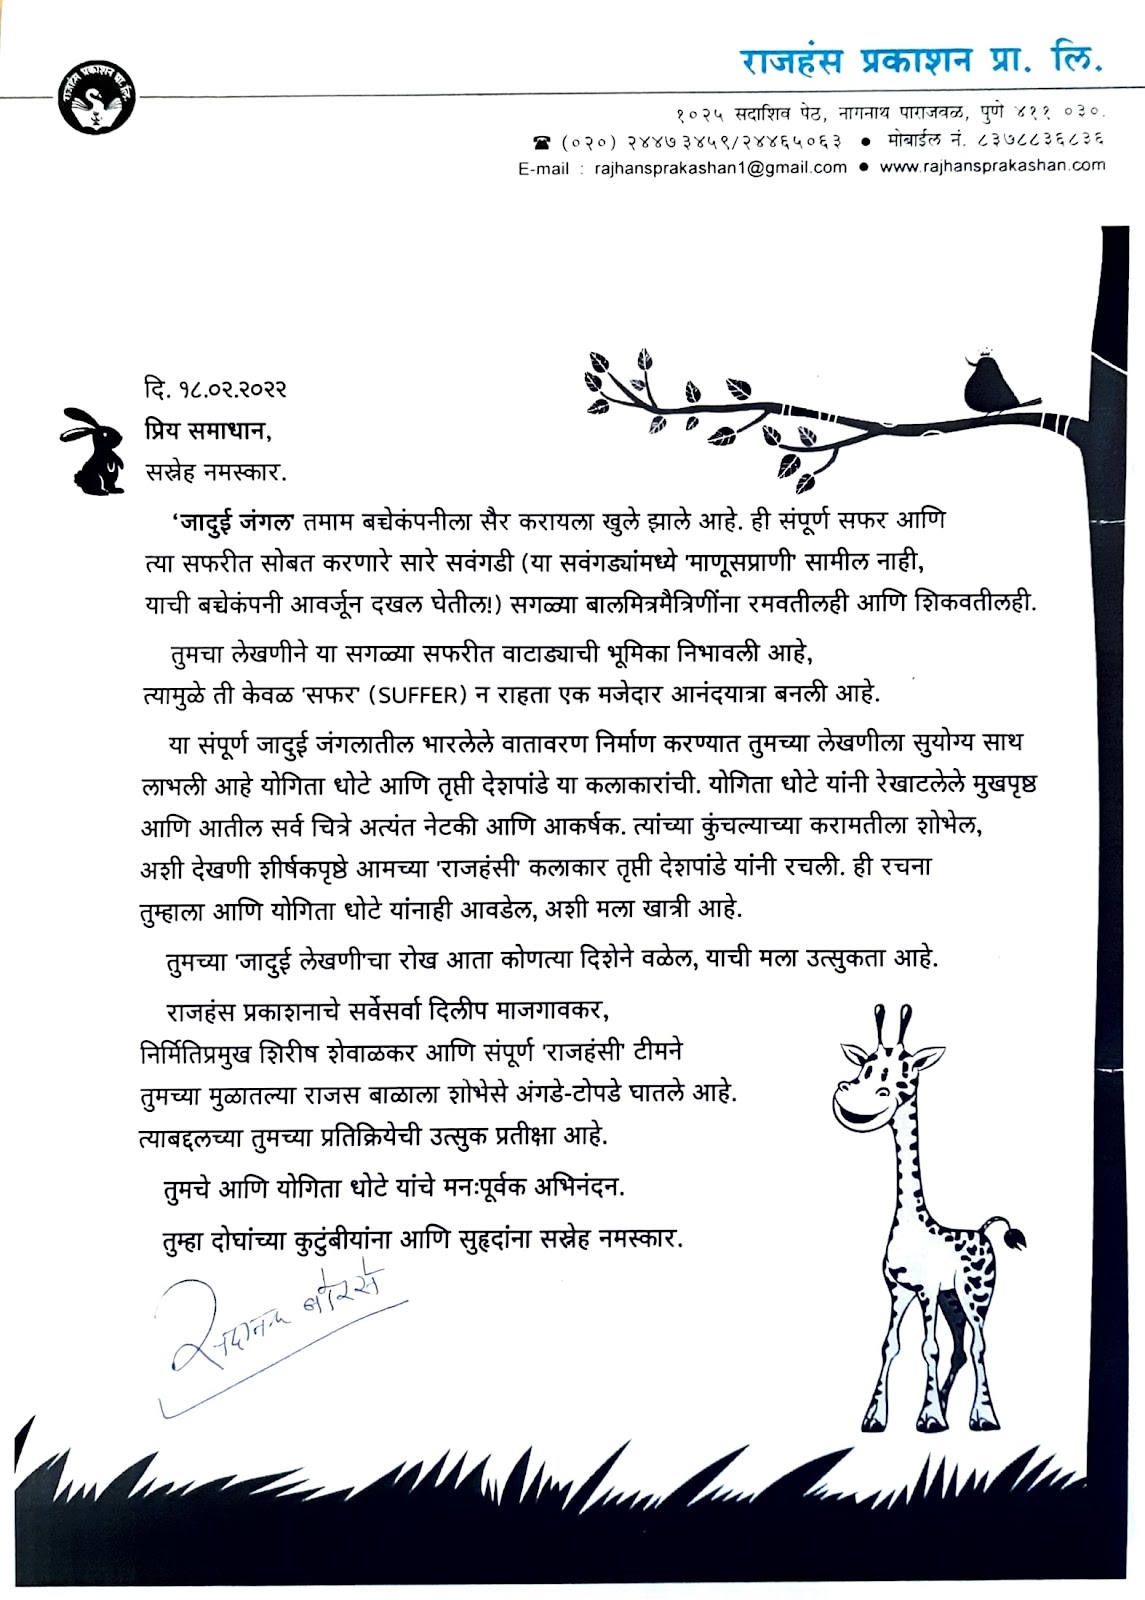 राजहंस प्रकाशन प्रा. लि.
राजहंस प्रकाशन प्रा. लि.
१०२५ सदाशिव पेठ, नागनाथ पाराजवळ, पुणे ४११ ०३०.
☎ (०२०) २४४७३४५९/२४४६५०६३ ● मोबाईल नं. ८३७८८३६८३६
E-mail : rajhansprakashan1@gmail.com ● www.rajhansprakashan.com
दि. १८.०२.२०२२
प्रिय समाधान,
सस्नेह नमस्कार.
'जादुई जंगल' तमाम बच्चेकंपनीला सैर करायला खुले झाले आहे. ही संपूर्ण सफर आणि
त्या सफरीत सोबत करणारे सारे सवंगडी (या सवंगड्यांमध्ये 'माणूसप्राणी' सामील नाही,
याची बच्चेकंपनी आवर्जून दखल घेतील!) सगळ्या बालमित्रमैत्रिणींना रमवतीलही आणि शिकवतीलही.
तुमचा लेखणीने या सगळ्या सफरीत वाटाड्याची भूमिका निभावली आहे,
त्यामुळे ती केवळ 'सफर' (SUFFER) न राहता एक मजेदार आनंदयात्रा बनली आहे.
या संपूर्ण जादुई जंगलातील भारलेले वातावरण निर्माण करण्यात तुमच्या लेखणीला सुयोग्य साथ
लाभली आहे योगिता धोटे आणि तृप्ती देशपांडे या कलाकारांची. योगिता धोटे यांनी रेखाटलेले मुखपृष्ठ
आणि आतील सर्व चित्रे अत्यंत नेटकी आणि आकर्षक. त्यांच्या कुंचल्याच्या करामतीला शोभेल,
अशी देखणी शीर्षकपृष्ठे आमच्या 'राजहंसी' कलाकार तृप्ती देशपांडे यांनी रचली. ही रचना
तुम्हाला आणि योगिता धोटे यांनाही आवडेल, अशी मला खात्री आहे.
तुमच्या 'जादुई लेखणी'चा रोख आता कोणत्या दिशेने वळेल, याची मला उत्सुकता आहे.
राजहंस प्रकाशनाचे सर्वेसर्वा दिलीप माजगावकर,
निर्मितिप्रमुख शिरीष शेवाळकर आणि संपूर्ण 'राजहंसी' टीमने
तुमच्या मुळातल्या राजस बाळाला शोभेसे अंगडे-टोपडे घातले आहे.
त्याबद्दलच्या तुमच्या प्रतिक्रियेची उत्सुक प्रतीक्षा आहे.
तुमचे आणि योगिता धोटे यांचे मनःपूर्वक अभिनंदन.
तुम्हा दोघांच्या कुटुंबीयांना आणि सुहृदांना सस्नेह नमस्कार.
सदानंद बोरसे